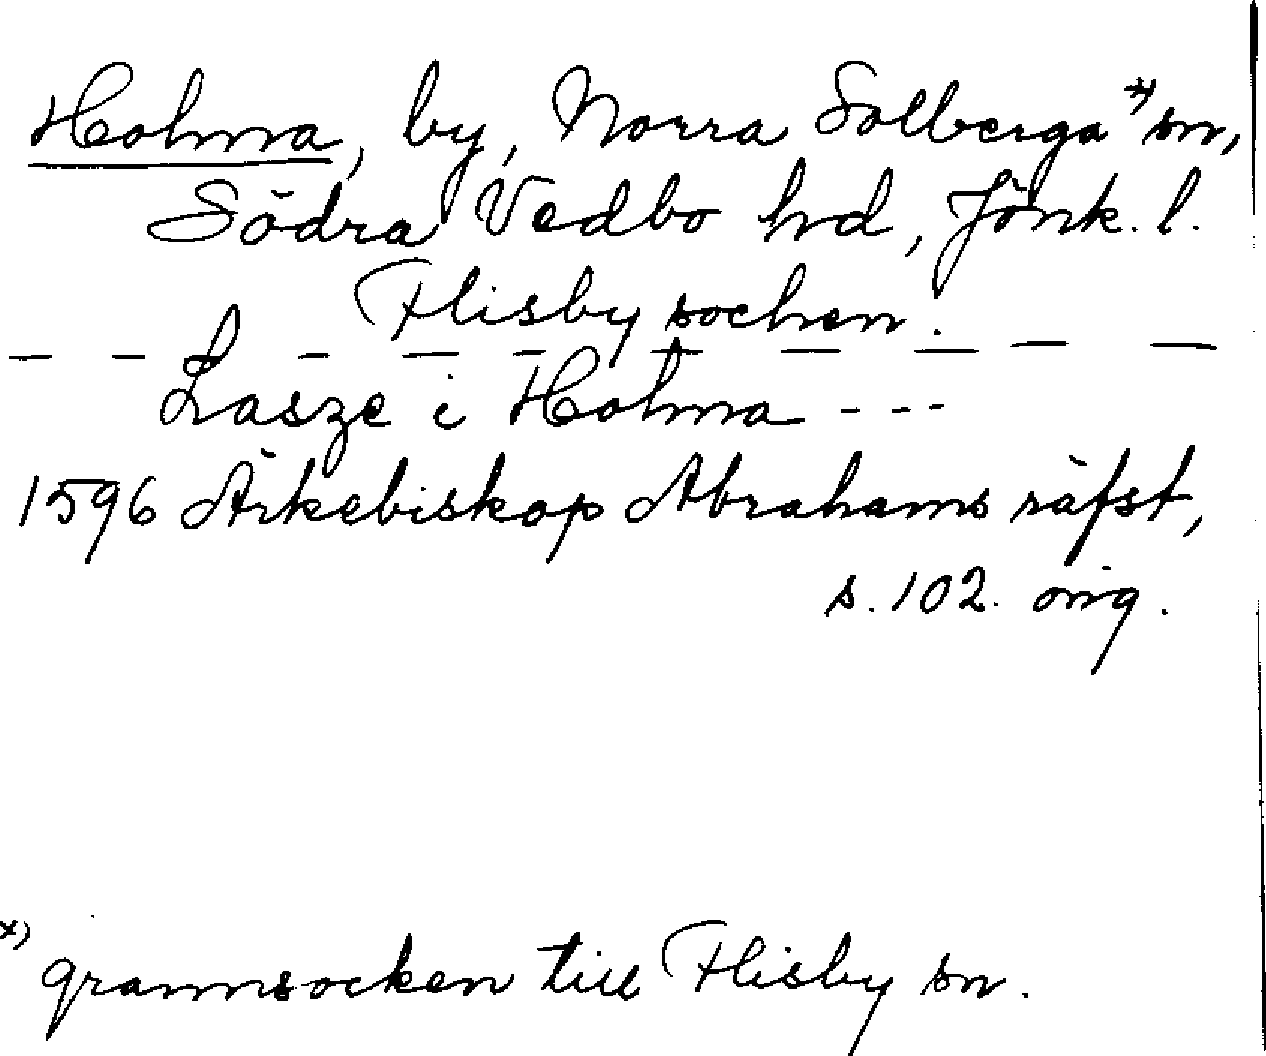 Holma, by, Norra Solberga x) sn,
Södra Vedbo hd, Jönk. l.
Flisby sochen.
— — — — — — — — — —
Lasze i Holma - - -
1596 Ärkebiskop Abrahams räfst,
s. 102. orig.
x) grannsocken till Flisby sn.